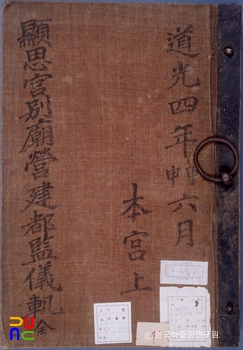 道光四年甲申六月
本宮上
顯思宮別廟營建都監儀軌全
한국학중앙연구원